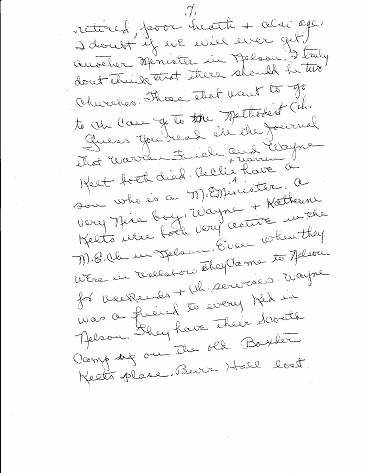 7.
retired, poor health + also age.
I doubt if we will ever get
another Minister in Nelson. I truly
dont think that there should be two
Churches. Those that want to go
to Ch can go to the Methodist Ch.
Guess you read in the Journal
that Warren and Wayne
Kelt both died. + Warren have a
son who is a M.E Minister. A
very nice boy. Wayne + Katherine
Kelts were both very active in the
M.E. Ch in Nelson. Even when they
were in Wellsboro they came to Nelson
for weekends + Ch. services. Wayne
was a friend to every kid in
Nelson. They have their Scout
Camp up on the old Baxter
Kelts place. Burr Hall lost